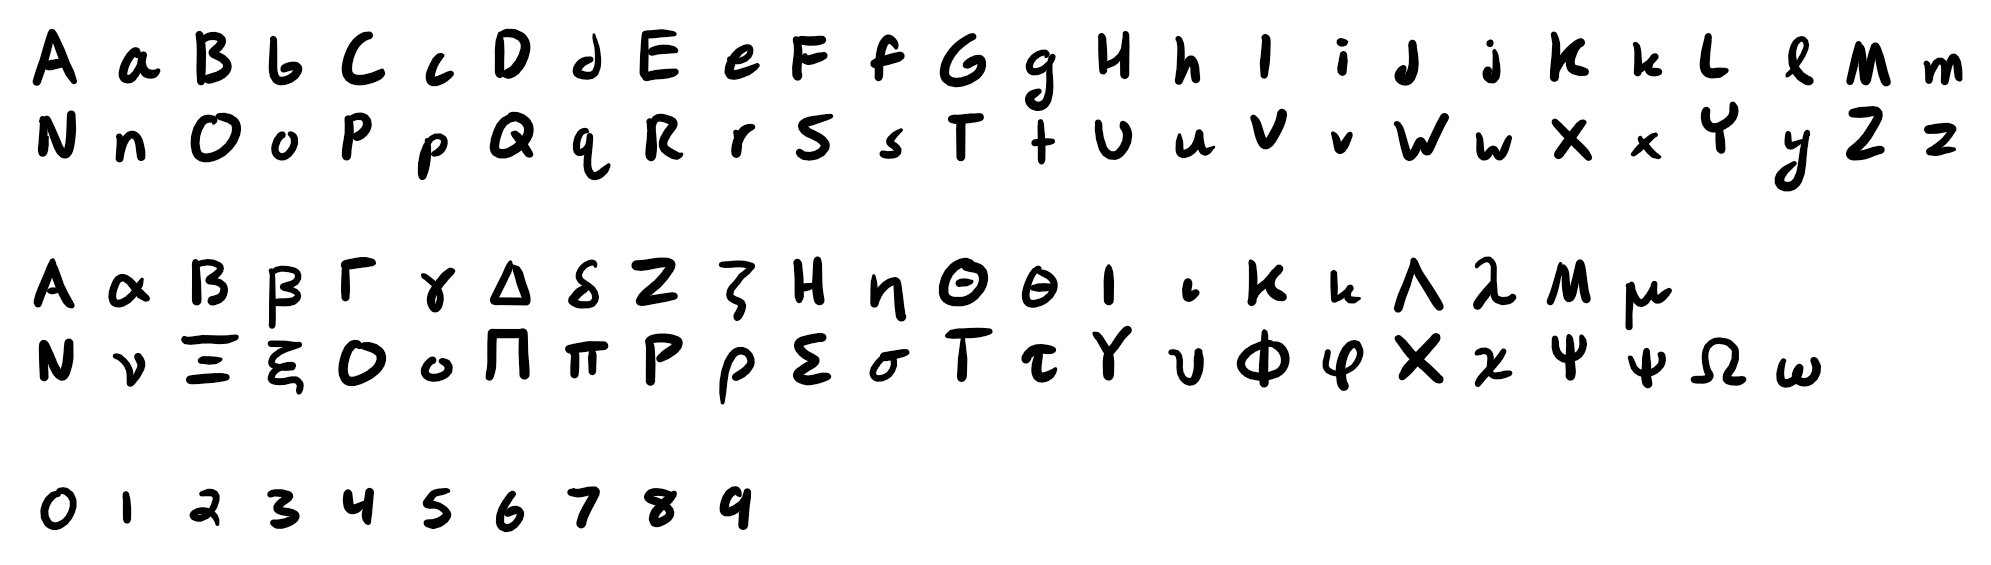 A a B b C c D d E e F f G g H h I i J j K k L l M m
N n O o P p Q q R r S s T t U u V v W w X x Y y Z z
Α α Β β Γ γ Δ δ Ζ ζ Η η Θ θ Ι ι Κ κ Λ λ Μ μ
Ν ν Ξ ξ Ο ο Π π Ρ ρ Σ σ Τ τ Υ υ Φ φ Χ χ Ψ ψ Ω ω
0 1 2 3 4 5 6 7 8 9